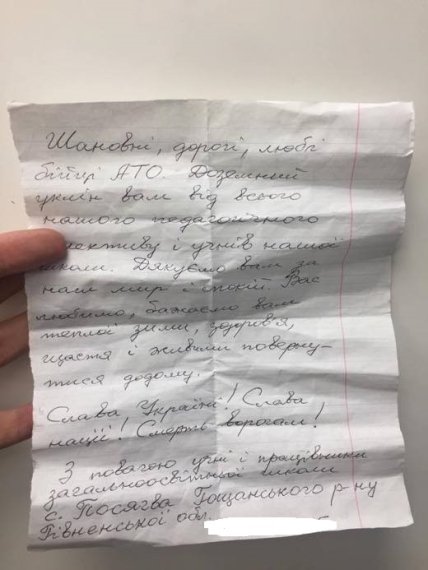 Шановні, дорогі, любі
бійці АТО. Доземний
уклін вам від всього
нашого педагогічного
колективу і учнів нашої
школи. Дякуємо вам за
наш мир і спокій. Вас
любимо, бажаємо вам
теплої зими, здоров'я,
щастя і живими поверну-
тися додому.
Слава Україні! Слава
нації! Смерть ворогам!
З повагою учні і працівники
загальноосвітньої школи
с. Посягва Гощанського р-ну
Рівненської обл.